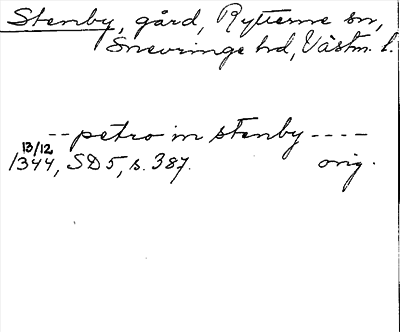 Stenby, gård, Rytterne sn,
Snevringe hd, Västm. l.
-- petro in stenby ----
13/12
1344, SD 5, s. 387. orig.